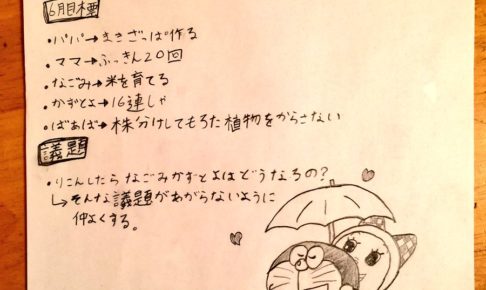 6月目標
・パパ→まきざっぱ作る
・ママ→ふっきん20回
・なごみ→米を育てる
・かずとよ→16連しゃ
・ばぁば→株分けしてもろた植物をからさない
議題
・りこんしたらなごみかずとよはどうなるの?
↳そんな議題があがらないように
仲よくする。